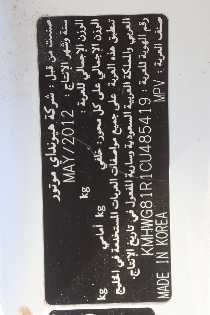 صنعت من قبل : شركة هيونداي موتور
سنة وشهر الانتاج : MAY/2012
الوزن الإجمالي للعربة : kg
الوزن الإجمالي على كل محور: خلفي kg أمامي kg
تطابق هذه العربة على جميع مواصفات العربات المستخدمة في الخليج
العربي والمملكة العربية السعودية وسارية المفعول في تاريخ الإنتاج.
رقم الهوية للعربة : KMHWG81R1CU485419
صنف العربة : MPV MADE IN KOREA